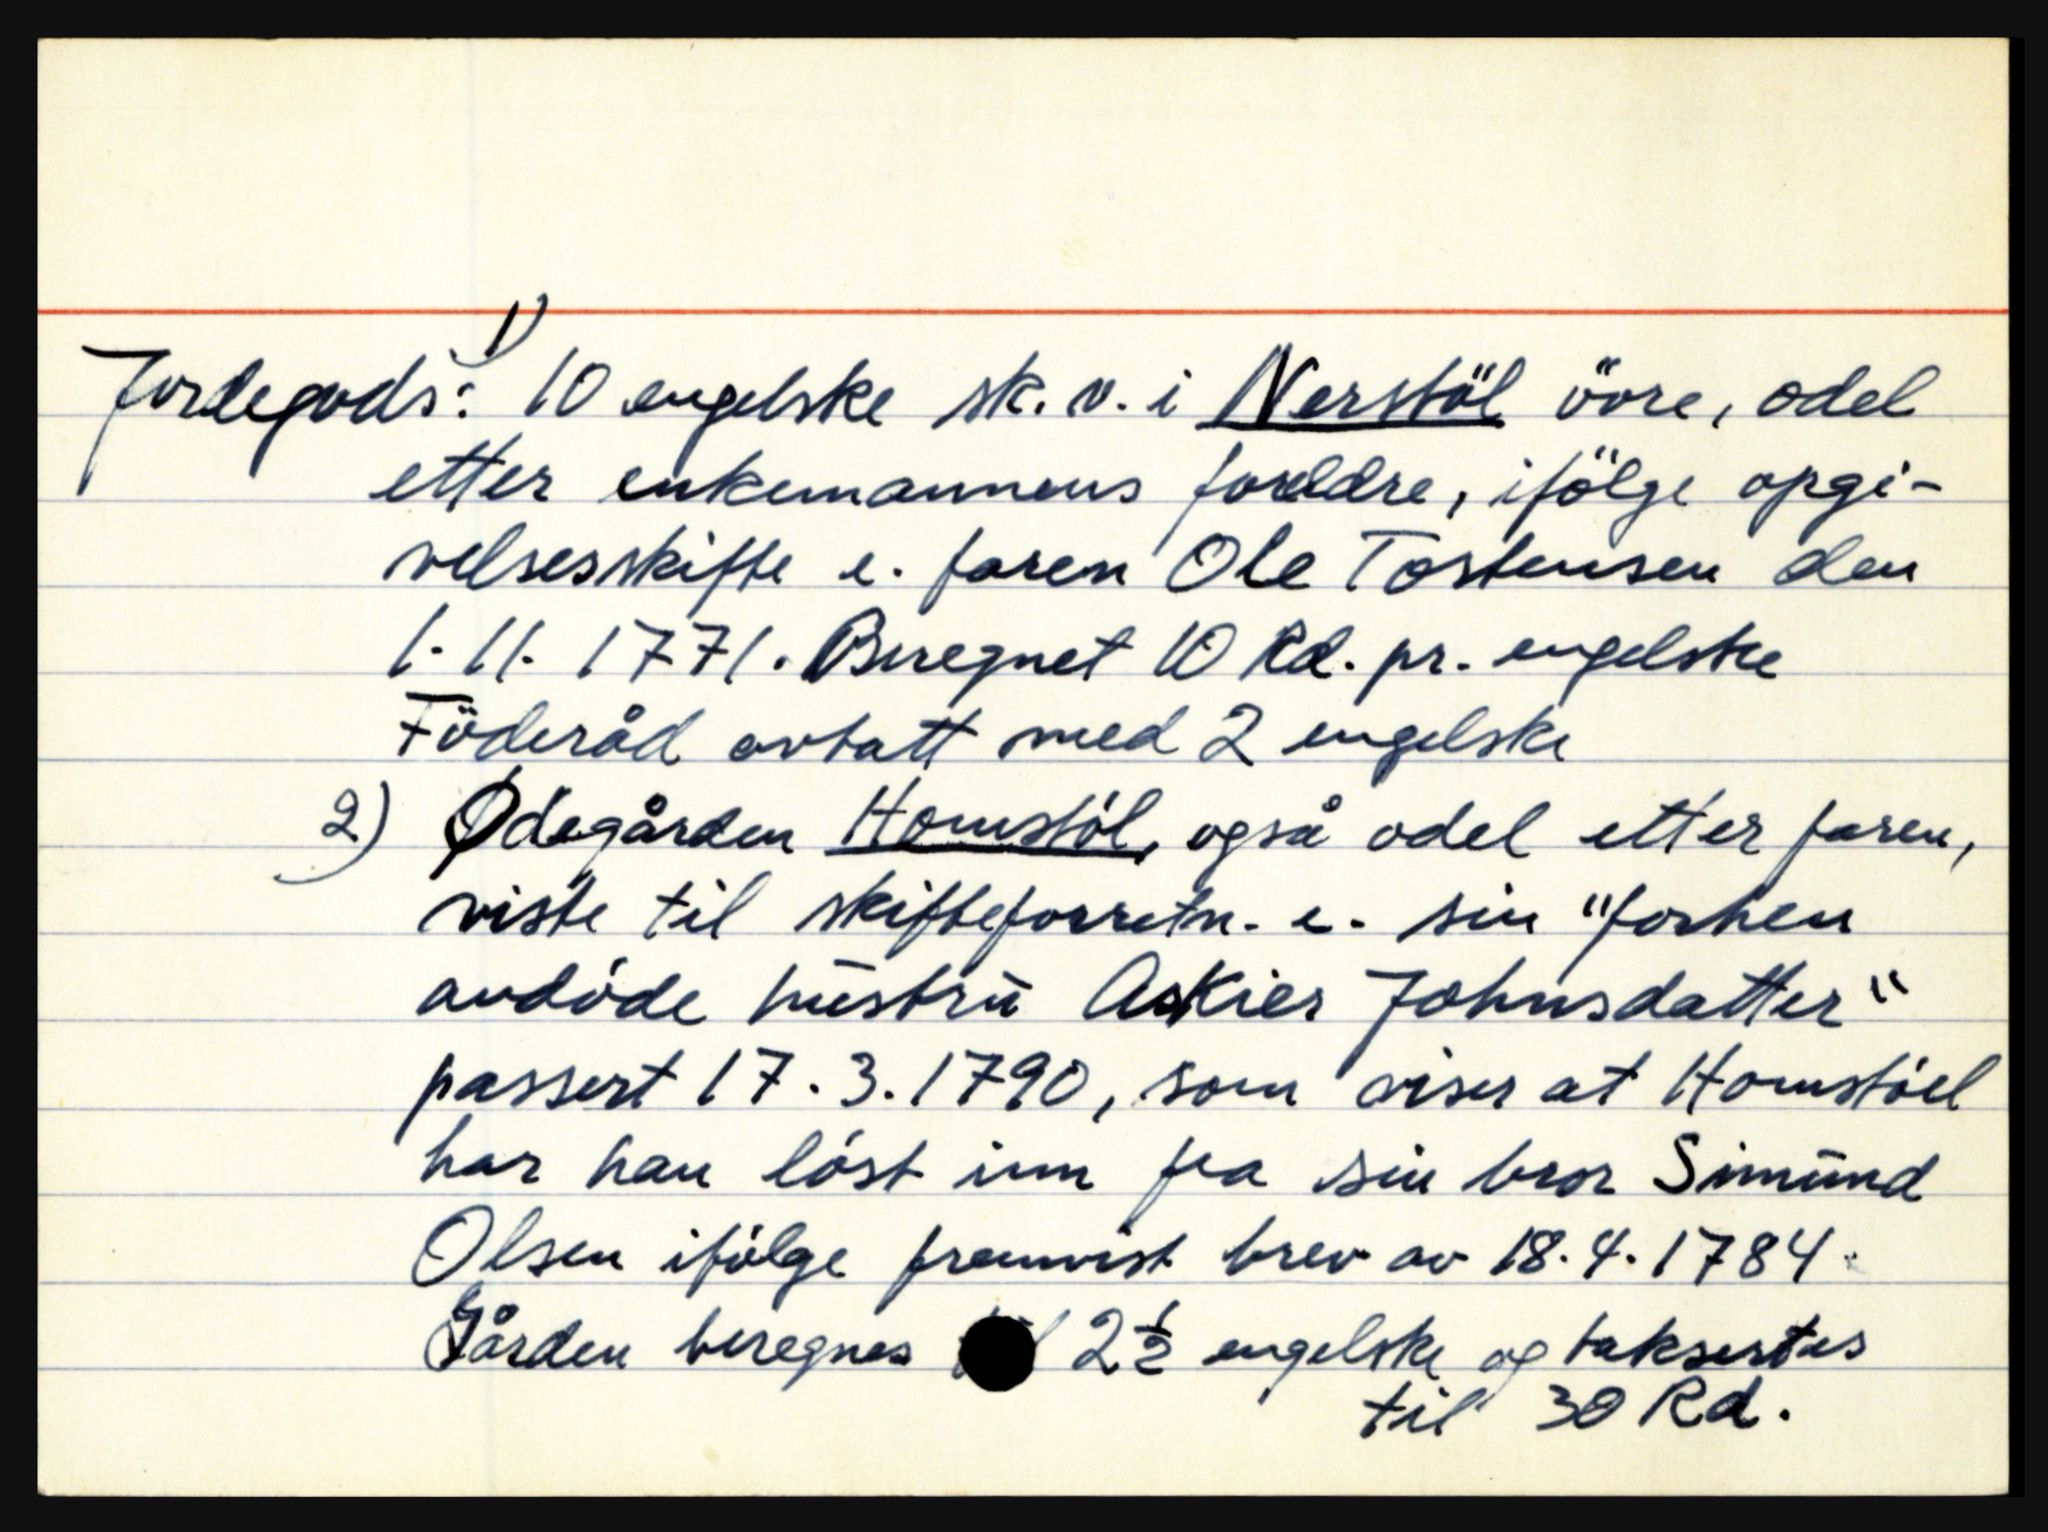 Jordegods: 1) 10 engelske sk. v. i Nerstöl övre, odel
etter enkemannens foreldre, ifölge opgi-
velsesskifte e. faren Ole Tostensen den
1. 11. 1771. Beregnet 10 Rd. pr. engelske
Föderåd avtatt med 2 engelske
2) Ødegården Homstöl, også odel etter faren,
viste til skifteforretn. e. sin "forhen
avdöde hustru Askier Johnsdatter"
passert 17. 3. 1790, som viser at Homstöel
har han löst inn fra sin bror Simund
Olsen ifölge fremvist brev av 18. 4. 1784.
Gården beregnes til 2 1/2 engelske og taksertes
til 30 Rd.